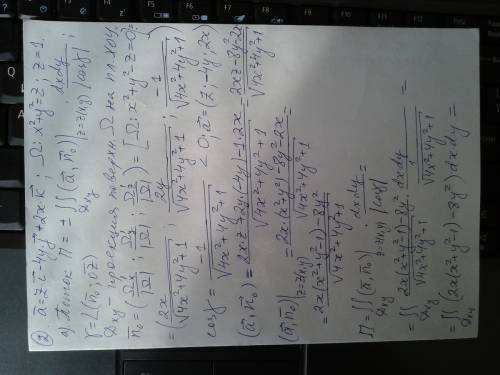 ② a̅ = z i⃗ - 4y j⃗ + 2x k⃗; Ω: x²+y²=z; z=1.
а) Поток П = ± ∬_{Dxy} (a⃗, n⃗₀)|_{z=z(x,y)} dxdy/|cosγ|;
γ = ∠(n⃗₀; OZ)
Dxy - проекция поверхн. Ω на пл. xoy.
n̅₀ = (Ω'x/|Ω̅|; Ω'y/|Ω̅|; Ω'z/|Ω̅|) = [Ω: x²+y²-z=0] =
= (2x/√(4x²+4y²+1); 2y/√(4x²+4y²+1); -1/√(4x²+4y²+1))
cosγ = -1/√(4x²+4y²+1) < 0; a⃗ = (z; -4y; 2x)
(a⃗, n⃗₀) = (2xz+2y(-4y)-1·2x)/√(4x²+4y²+1) = (2xz-8y²-2x)/√(4x²+4y²+1)
(a⃗, n⃗₀)|_{z=z(x,y)} = (2x(x²+y²)-8y²-2x)/√(4x²+4y²+1) =
= (2x(x²+y²-1)-8y²)/√(4x²+4y²+1)
П = ∬_{Dxy} (a⃗, n⃗₀)|_{z=z(x,y)} dxdy/|cosγ| =
= ∬_{Dxy} (2x(x²+y²-1)-8y²)/√(4x²+4y²+1) · dxdy/(1/√(4x²+4y²+1)) =
= ∬_{Dxy} (2x(x²+y²-1)-8y²)dxdy =